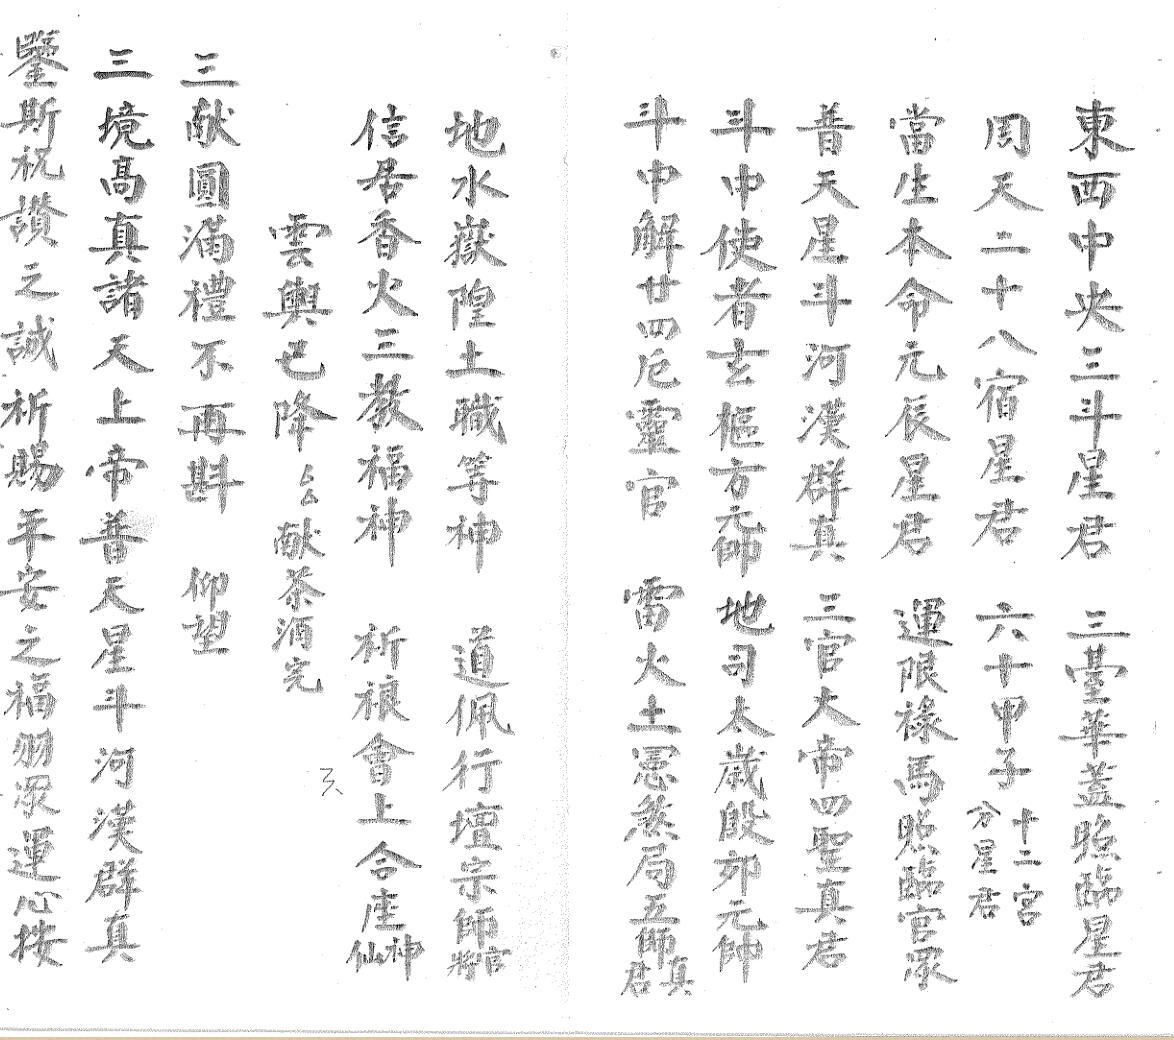 東西中央三斗星君 三臺華蓋照臨星君
周天二十八宿星君 六十甲子十二宮分星君
當生本命元辰星君 運限祿馬照臨官眾
普天星斗河漢群真 三官大帝四聖真君
斗中使者玄樞方元帥 地司太歲殷郊元帥
斗中解廿四厄靈官 雷火土憲煞局五師真君
地水嶽隍土職等神 道佩行壇宗師官將
信居香火三教福神 祈禳會上合座神仙
雲輿已降 厶厶献茶酒完
三献圓滿禮不再斟 仰望
三境高真諸天上帝普天星斗河漢群真
鑒斯祝讚之誠祈賜平安之福 眾運心按